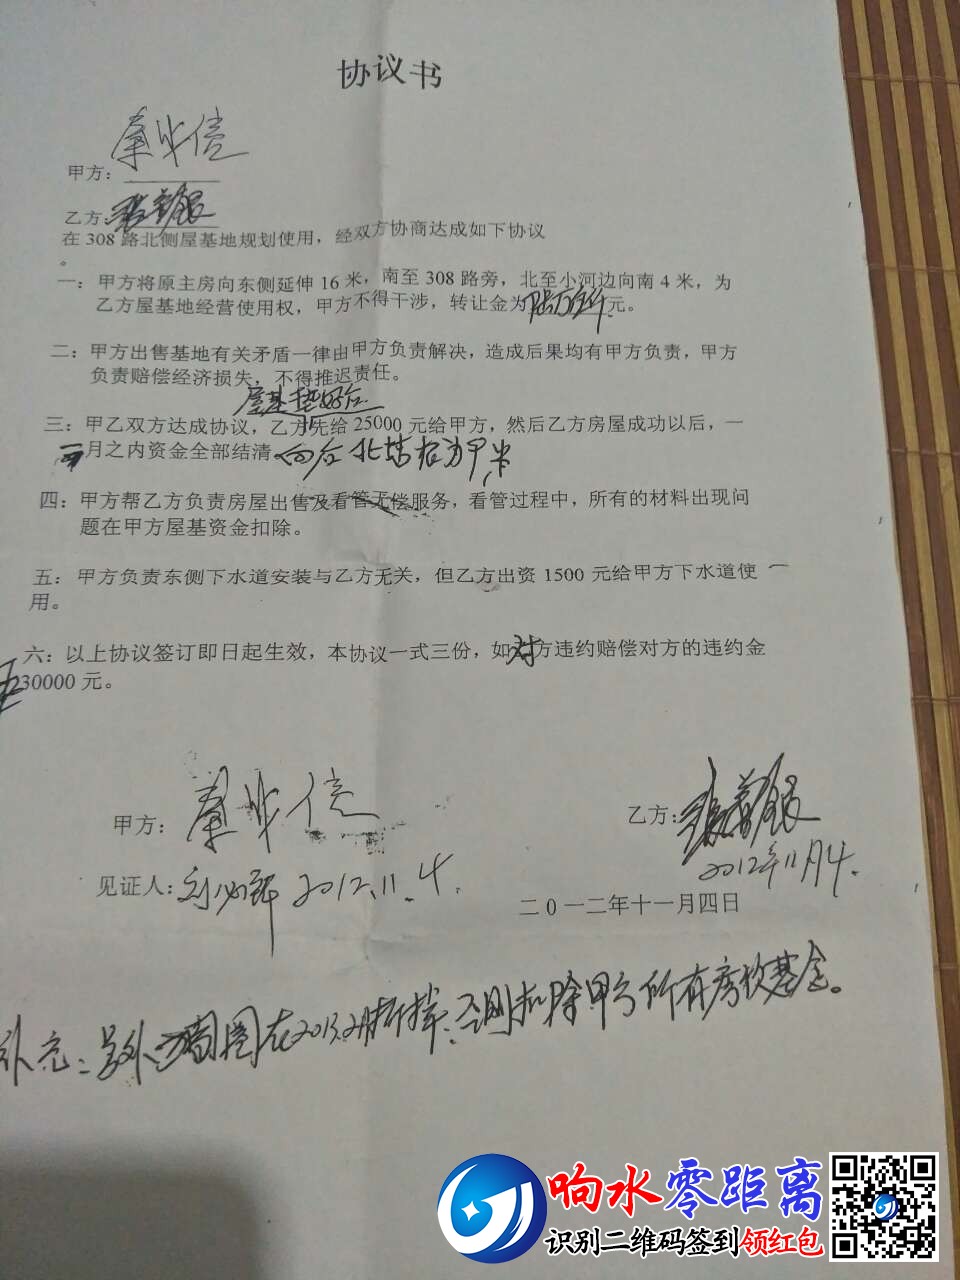 协议书
甲方：
乙方：
在 308 路北侧屋基地规划使用，经双方协商达成如下协议
。
一：甲方将原主房向东侧延伸 16 米，南至 308 路旁，北至小河边向南 4 米，为
乙方屋基地经营使用权，甲方不得干涉，转让金为陆万元。
二：甲方出售基地有关矛盾一律由甲方负责解决，造成后果均有甲方负责，甲方
负责赔偿经济损失，不得推迟责任。
屋基垫好后
三：甲乙双方达成协议，乙方先给 25000 元给甲方，然后乙方房屋成功以后，一
月之内资金全部结清
四：甲方帮乙方负责房屋出售及看管无偿服务，看管过程中，所有的材料出现问
题在甲方屋基资金扣除。
五：甲方负责东侧下水道安装与乙方无关，但乙方出资 1500 元给甲方下水道使
用。
六：以上协议签订即日起生效，本协议一式三份，如对方违约赔偿对方的违约金
30000 元。
甲方：
乙方：
2012年11月4.
见证人： 2012.11.4.
二0一二年十一月四日
补充：另外 圈在2013.2月拆掉，否则扣除甲方所有 基金。
响水零距离
识别二维码签到领红包